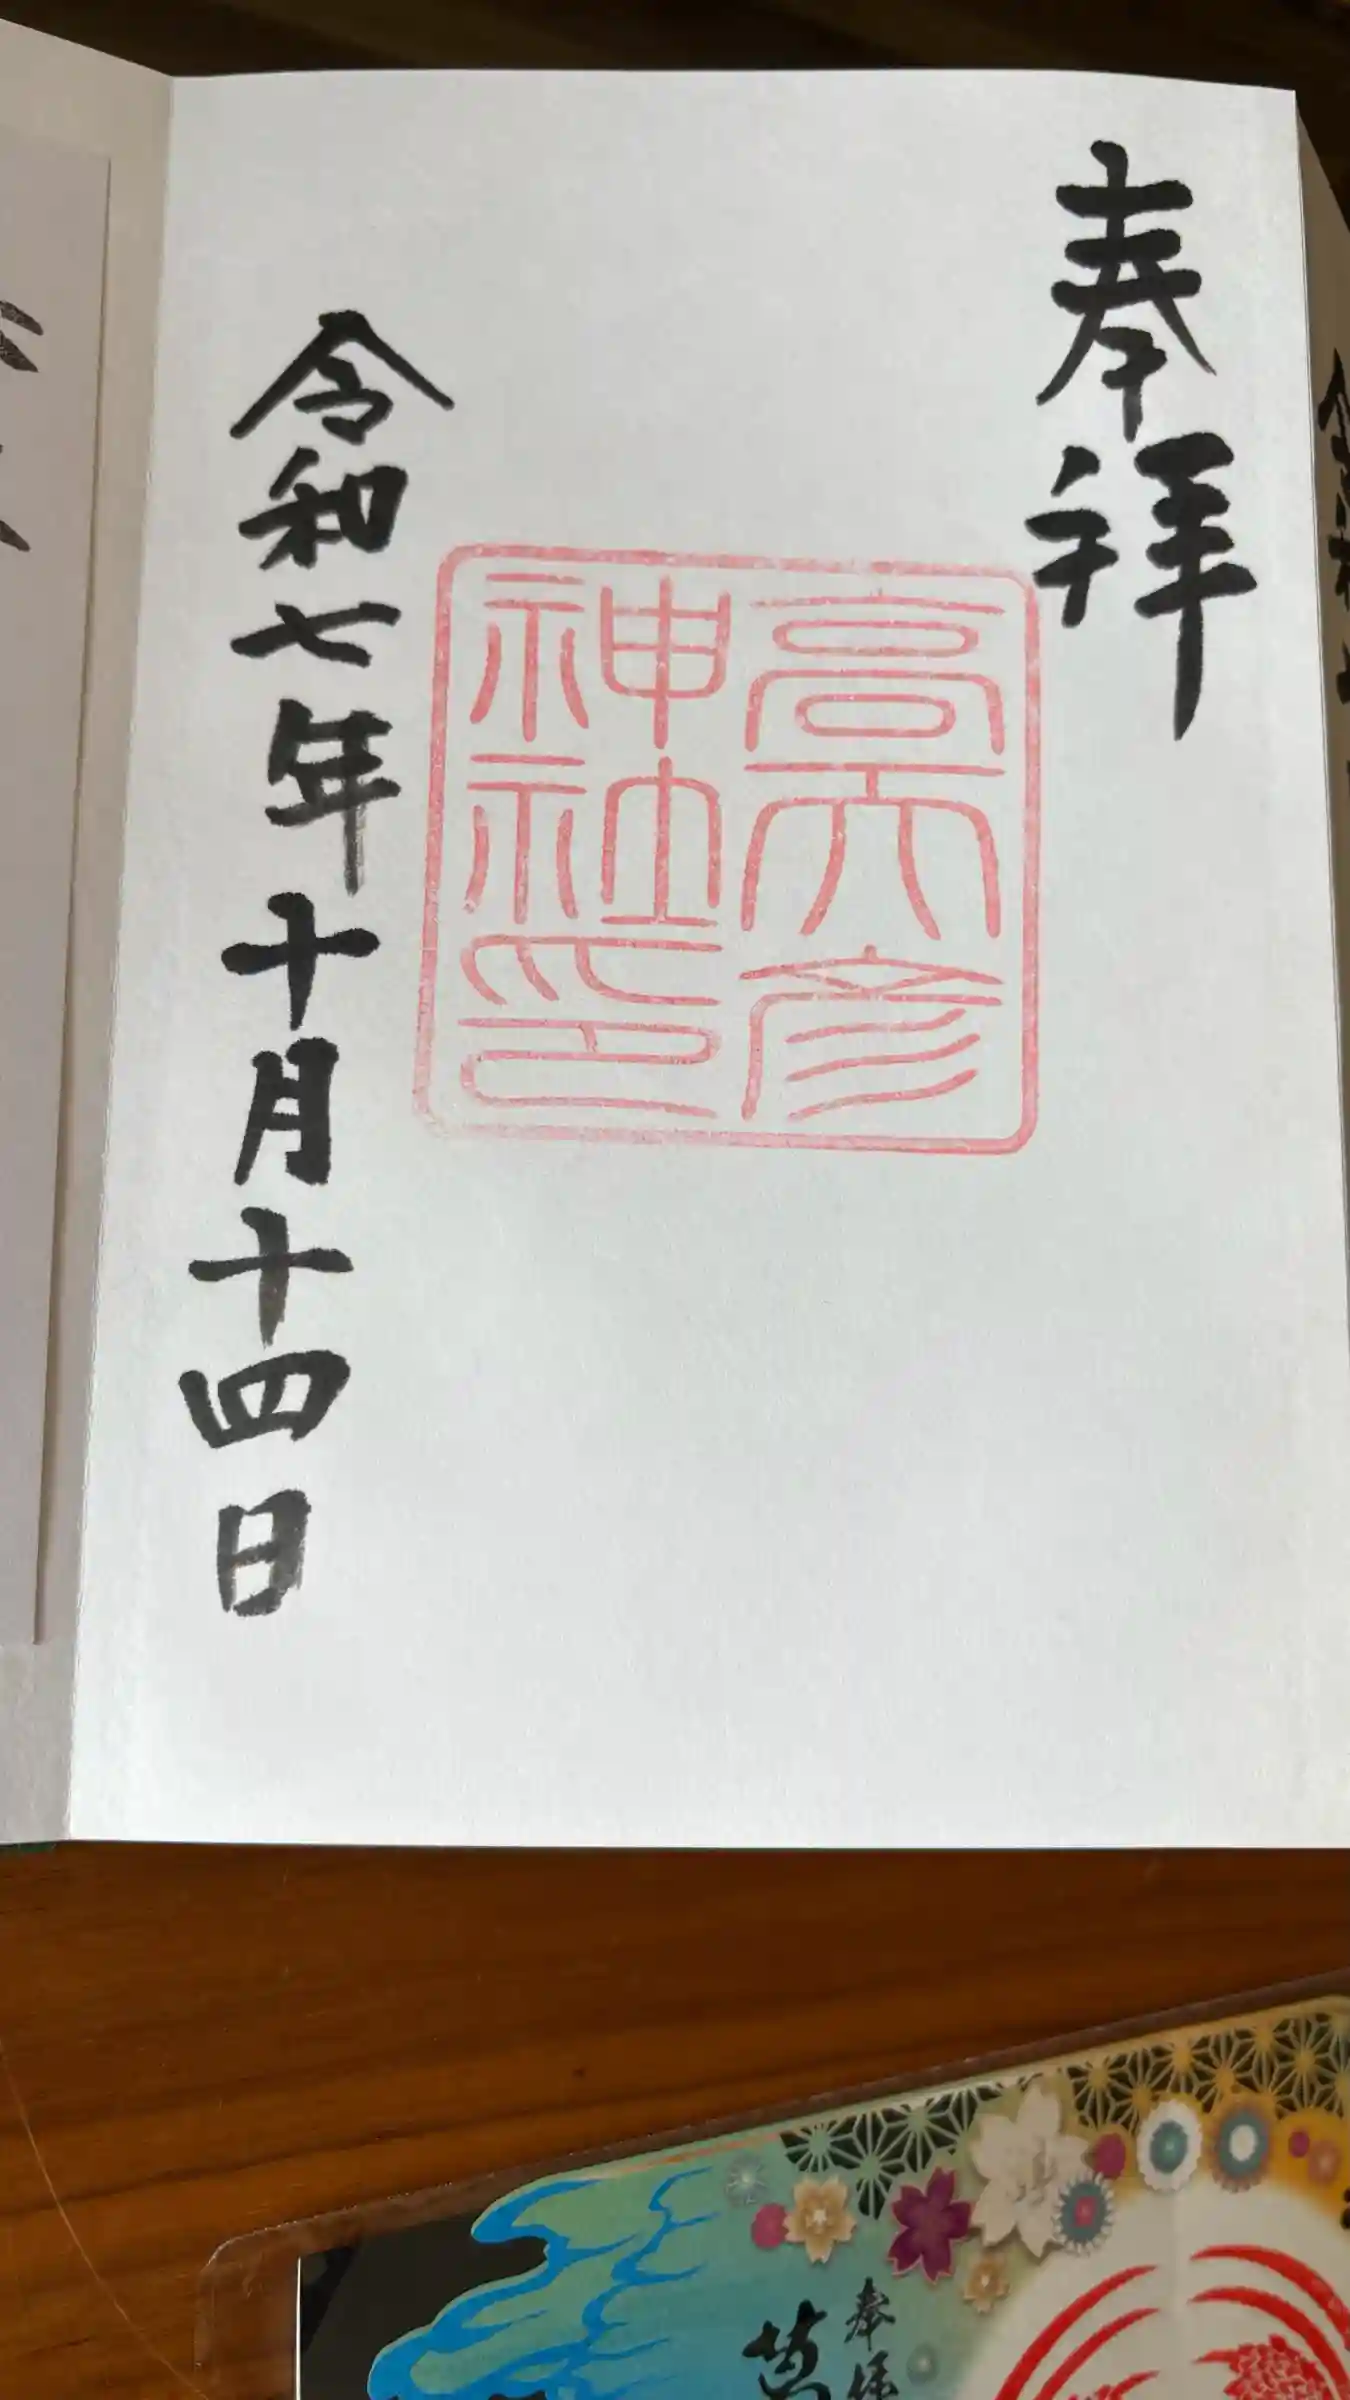 奉拝
高天彦
神社印
令和七年十月十四日
奉拝